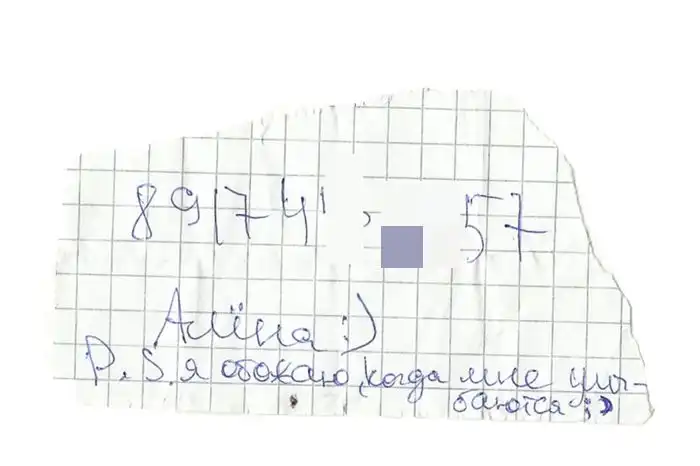 89174 57
Алёна :)
P.S. я обожаю, когда мне улы-
баются ;)